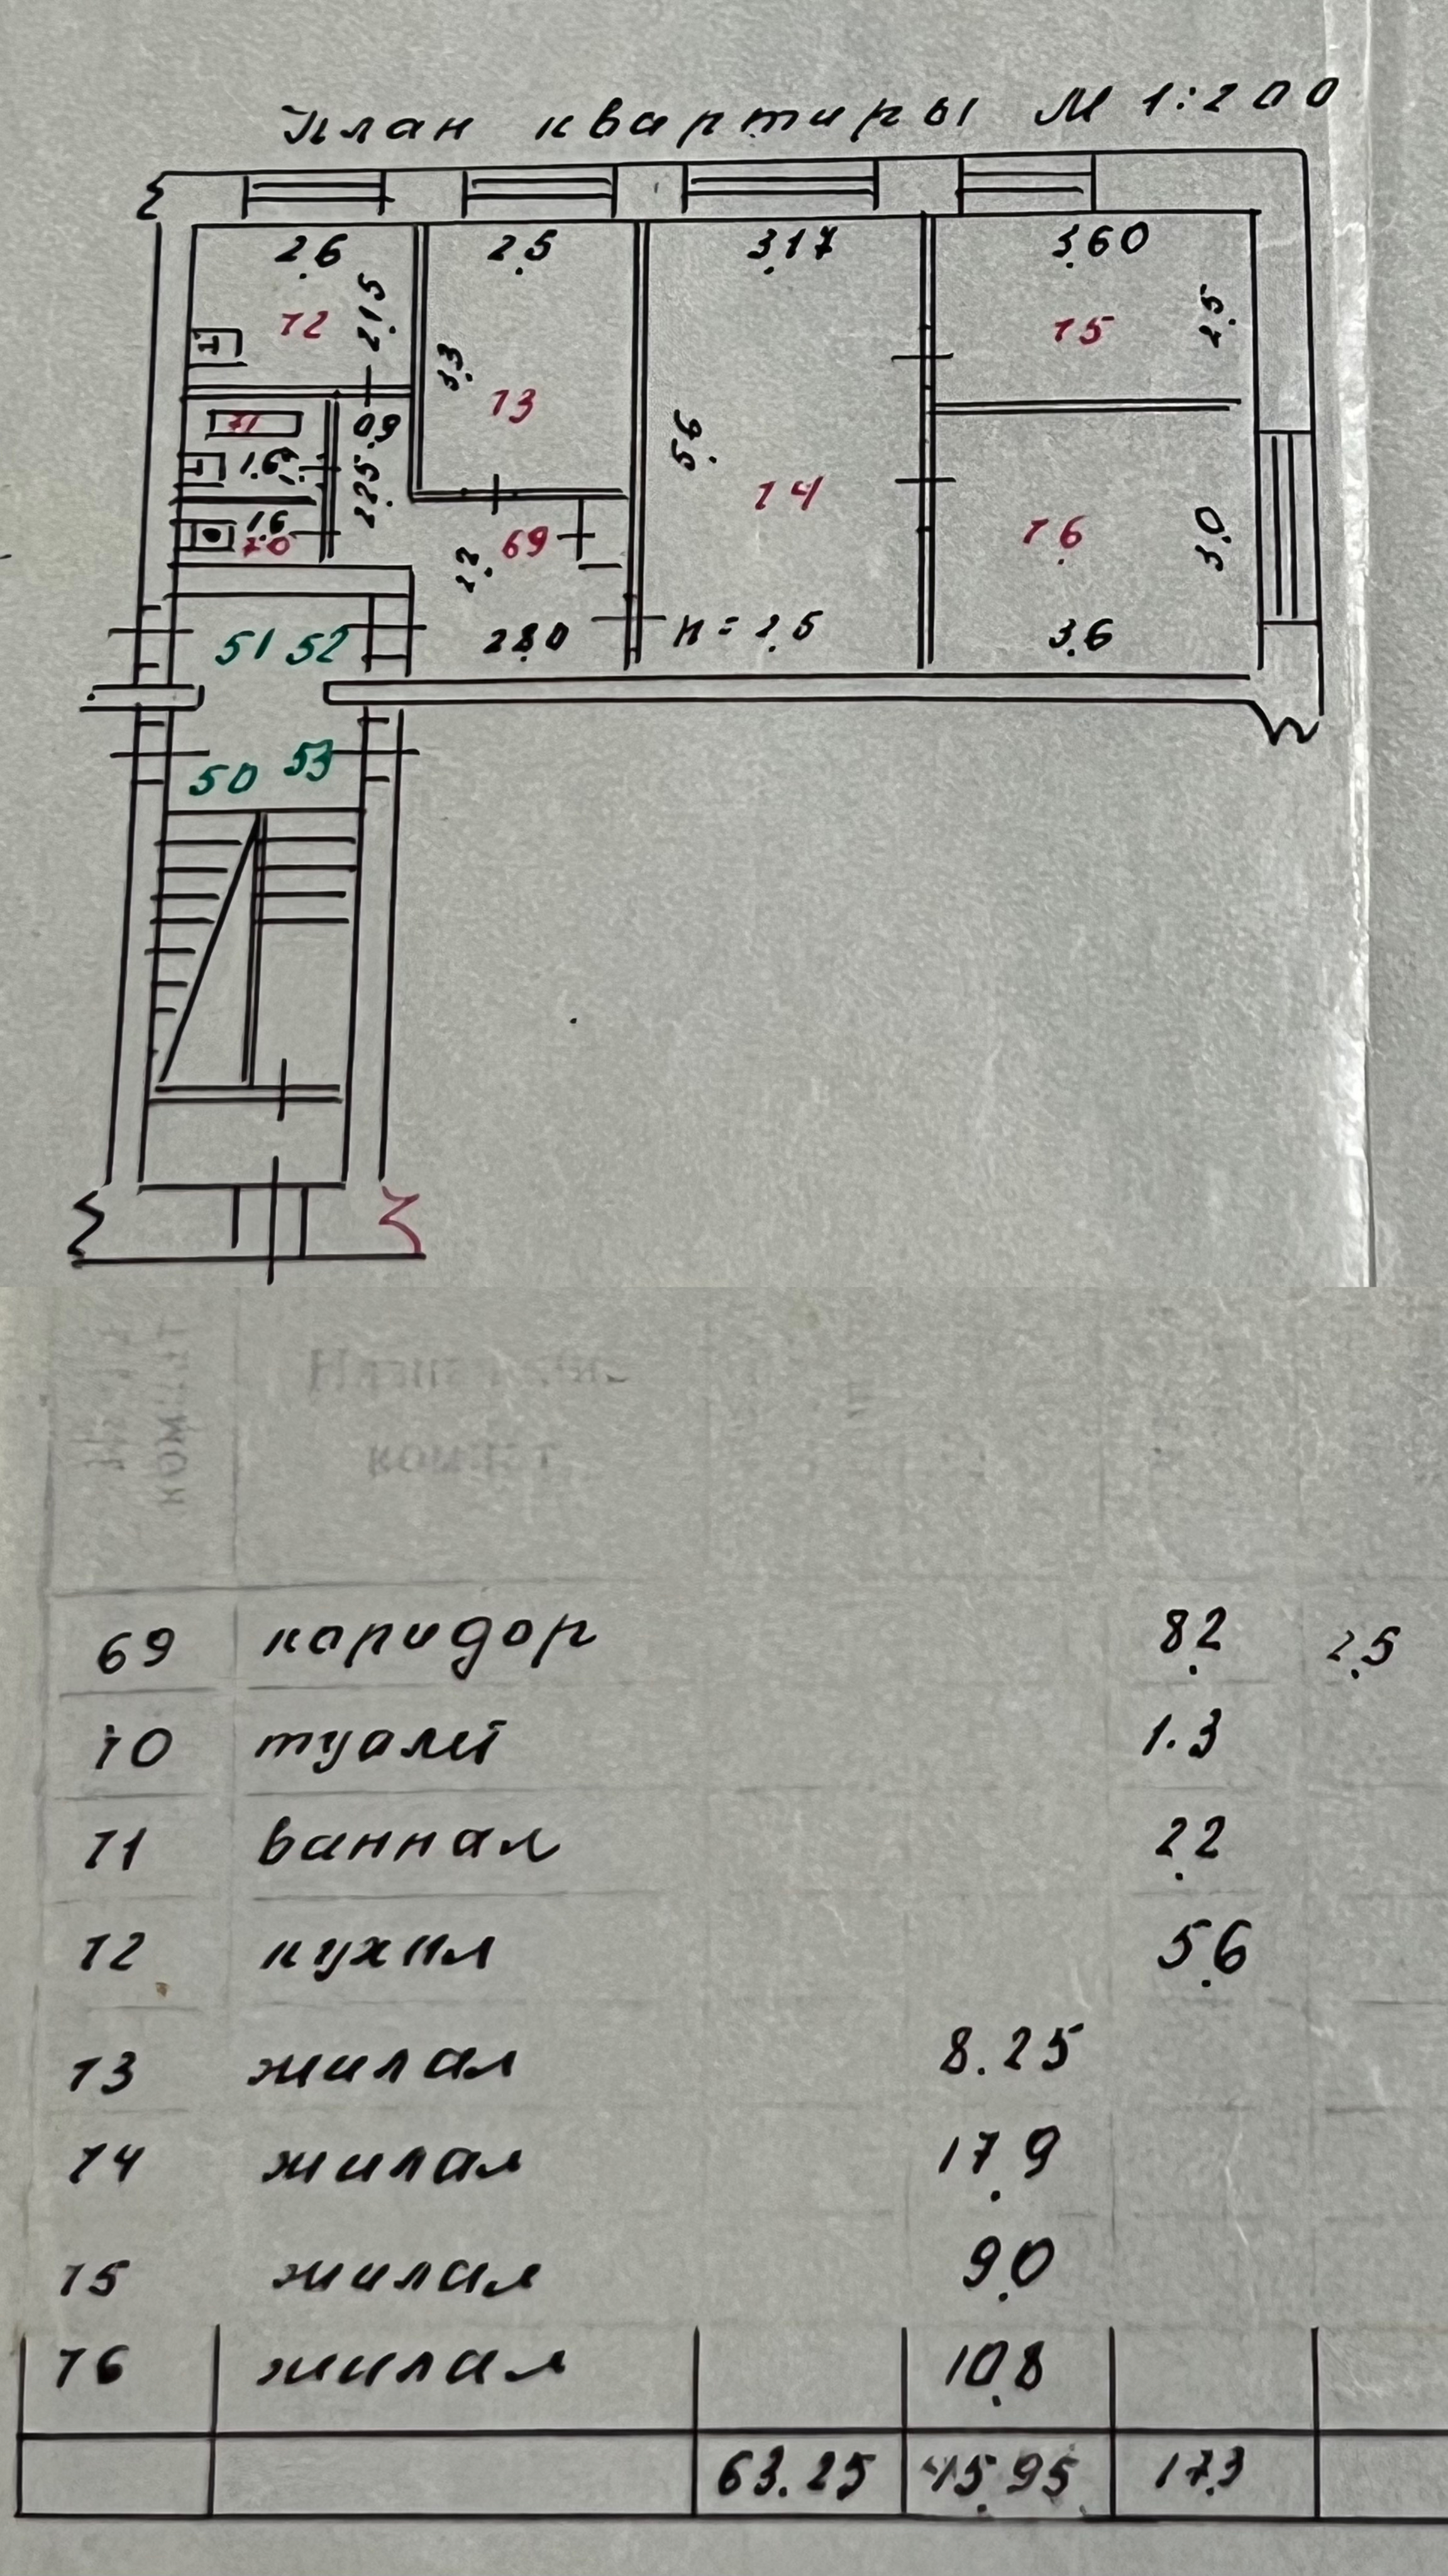 План квартиры М 1:200
2.6 2.5 3.17 3.60
72 2.15 3.3 73 75 2.5
71 0.9 5.6
1.6 2.25 74
1.6 70 69 2.2 76 3.0
51 52 2.80 н = 2.5 3.6
50 53
69 каридор 8.2 2.5
70 туалет 1.3
71 ванная 2.2
72 кухня 5.6
73 жилая 8.25
74 жилая 17.9
75 жилая 9.0
76 жилая 10.8
63.25 45.95 17.3